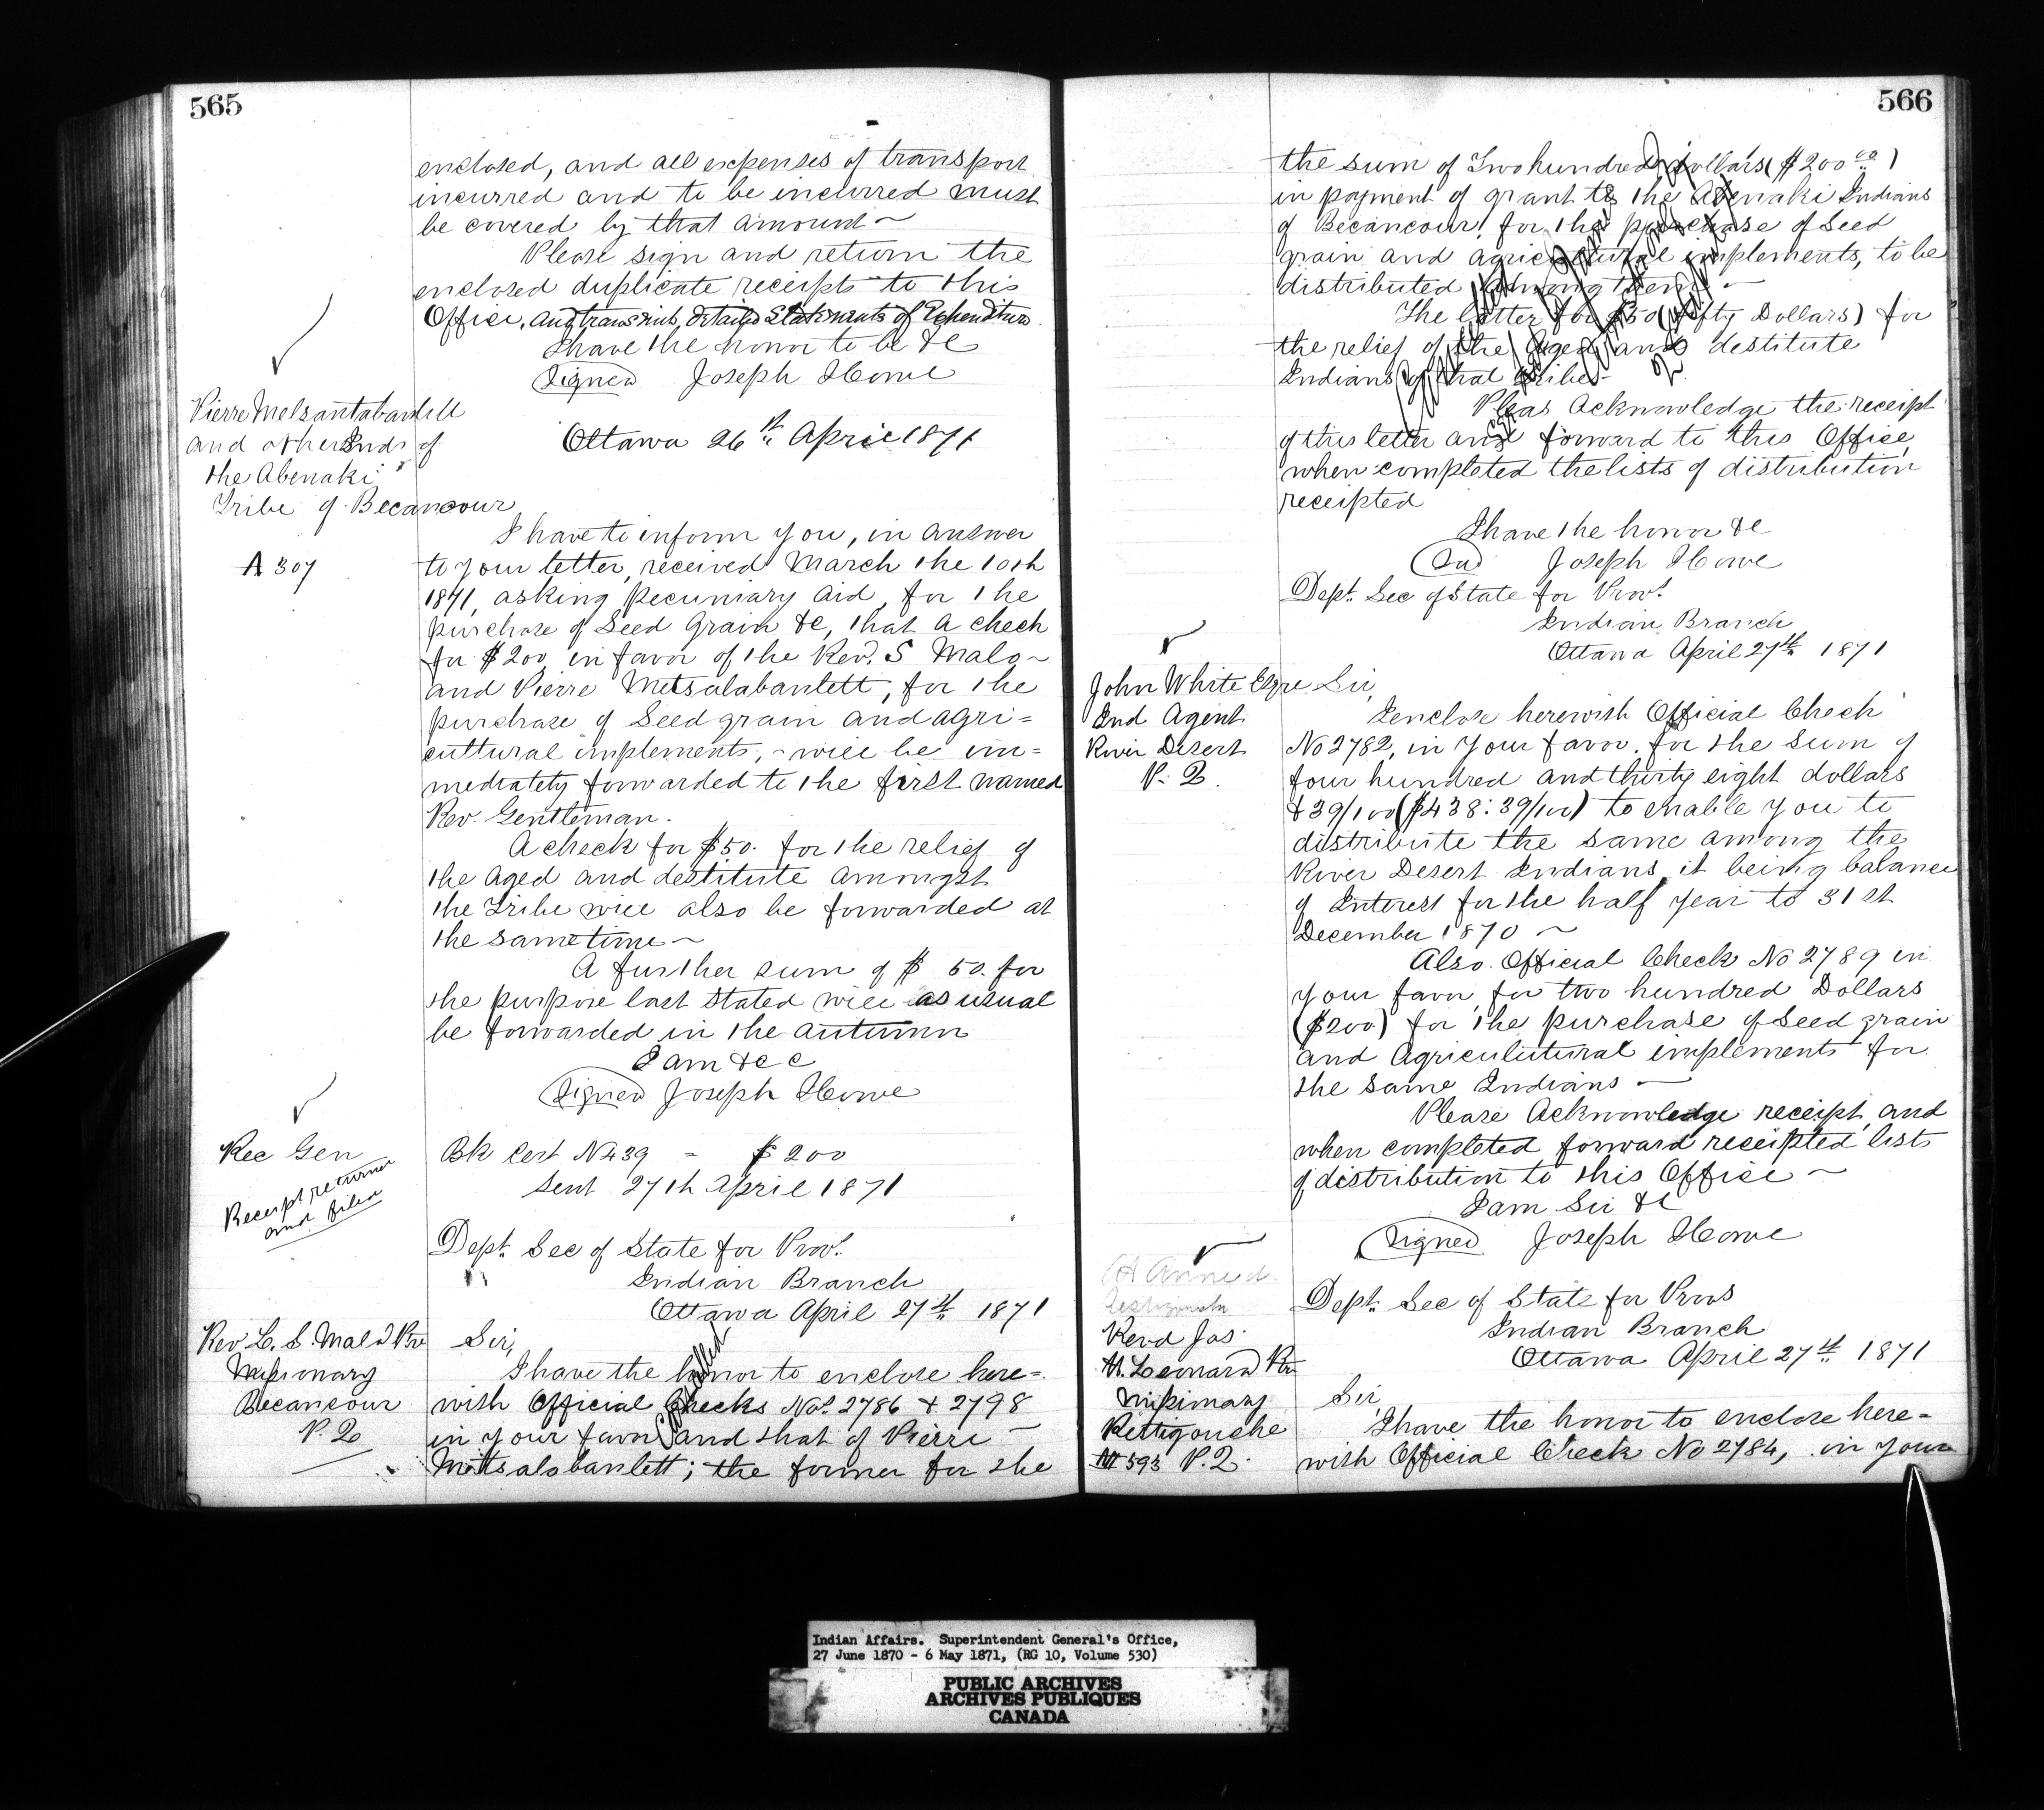 565
enclosed, and all expenses of transport
incurred and to be incurred must
be covered by that amount ~
Please sign and return the
enclosed duplicate receipts to this
Office, and transmit, detailed Statements of Expenditure
I have the honor to be &c
Signed Joseph Howe
Pierre
and other Inds of
the Abenaki
Tribe of Becancour
Ottawa 26th April 1871
A 307
I have to inform you, in answer
to your letter, received March the 10th
1871, asking pecuniary aid, for the
purchase of Seed Grain &c, that a check
for $200 in favor of the Rev. S Malo ~
and Pierre Metsalabanlett, for the
purchase of Seed grain and agri=
cultural implements, ~ will be im=
mediately forwarded to the first named
Rev. Gentleman.
A check for $50. for the relief of
the aged and destitute amongst
the Tribe will also be forwarded at
the same time ~
A further sum of $ 50. for
the purpose last stated will as usual
be forwarded in the autumn
I am &c c
Signed Joseph Howe
Rec Gen
Receipt returned
and filed
Bk Cert No 439 = $ 200
Sent 27th April 1871
Dept. Sec of State for Prov.s
Indian Branch
Ottawa April 27th 1871
Rev L. S. Malo Ptre
Missionary
Becancour
P. Q
Sir,
I have the honor to enclose here=
with Official Checks Nos. 2786 & 2798
in your favor and that of Pierre ~
Metsalabanlett; the former for the
Cancelled
566
the sum of Two hundred dollars ($200.00)
in payment of grant to the Abenaki Indians
of Becancour, for the purchase of Seed
grain and agricultural implements, to be
distributed among them. ~
The latter for $50 (fifty Dollars) for
the relief of the Aged and destitute
Indians of that tribe ~
Pleas Acknowledge the receipt
of this letter and forward to this Office,
when completed the lists of distribution
receipted
I have the honor &c
(Sd) Joseph Howe
Dept. Sec of State for Prov.s
Indian Branch
Ottawa April 27th 1871
John White Esqre
Ind Agent
River Desert
P. Q.
Sir,
I enclose herewith Official Check
No 2782, in your favor, for the Sum of
four hundred and thirty eight dollars
& 39/100 ($438: 39/100) to enable you to
distribute the same among the
River Desert Indians, it being balance
of Interest for the half year to 31st
December 1870 ~
Also Official Check No 2789 in
your favor, for two hundred Dollars
($200) for the purchase of Seed grain
and Agriculutural implements for
the same Indians ~
Please Acknowledge receipt, and
when completed forward receipted lists
of distribution to this Office ~
I am Sir &c
Signed Joseph Howe
Dept. Sec of State for Provs
Indian Branch
Ottawa April 27th 1871
Revd Jas.
H. Leonard Ptre
Missionary
Ristigouche
593 P. Q.
Sir
I have the honor to enclose here=
with Official Check No 2784, in your
Indian Affairs. Superintendent General's Office,
27 June 1870 - 6 May 1871, (RG 10, Volume 530)
PUBLIC ARCHIVES
ARCHIVES PUBLIQUES
CANADA